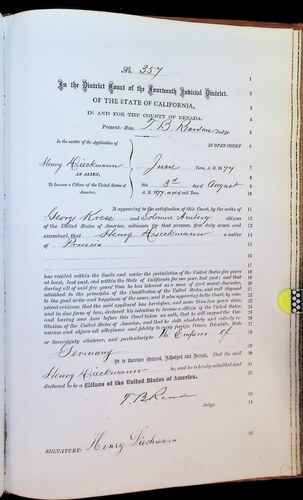 No. 357
In the District Court of the Fourteenth Judicial District,
OF THE STATE OF CALIFORNIA,
IN AND FOR THE COUNTY OF NEVADA.
Present: Hon. T. B. Reardan Judge.
In the matter of the Application of
IN OPEN COURT
Henry Dieckmann
AN ALIEN,
June Term, A. D. 1877
To become a Citizen of the United States of America.
this 3rd day of August
A. D. 1877, as yet of said Term.
It appearing to the satisfaction of this Court, by the oaths of
George Kruse and Solomon Amberg citizens
of the United States of America, witnesses for that purpose, first duly sworn and
examined, that Henry Dieckmann a native
of Prussia
has resided within the limits and under the jurisdiction of the United States five years
at least, last past, and within the State of California for one year, last past; and that
during all of said five years' time he has behaved as a man of good moral character,
attached to the principles of the Constitution of the United States, and well disposed
to the good order and happiness of the same; and it also appearing to the Court, by com-
petent evidence, that the said applicant has heretofore, and more than two years since,
and in due form of law, declared his intention to become a citizen of the United States,
and having now here before this Court taken an oath, that he will support the Con-
stitution of the United States of America, and that he doth absolutely and entirely re-
nounce and abjure all allegiance and fidelity to every foreign Prince, Potentate, State
or Sovereignty whatever, and particularly to the Emperor of
Germany
It is therefore Ordered, Adjudged and Decreed, that the said
Henry Dieckmann be, and he is hereby admitted and
declared to be a Citizen of the United States of America.
T. B. Reardan
Judge.
SIGNATURE: Henry Dieckmann